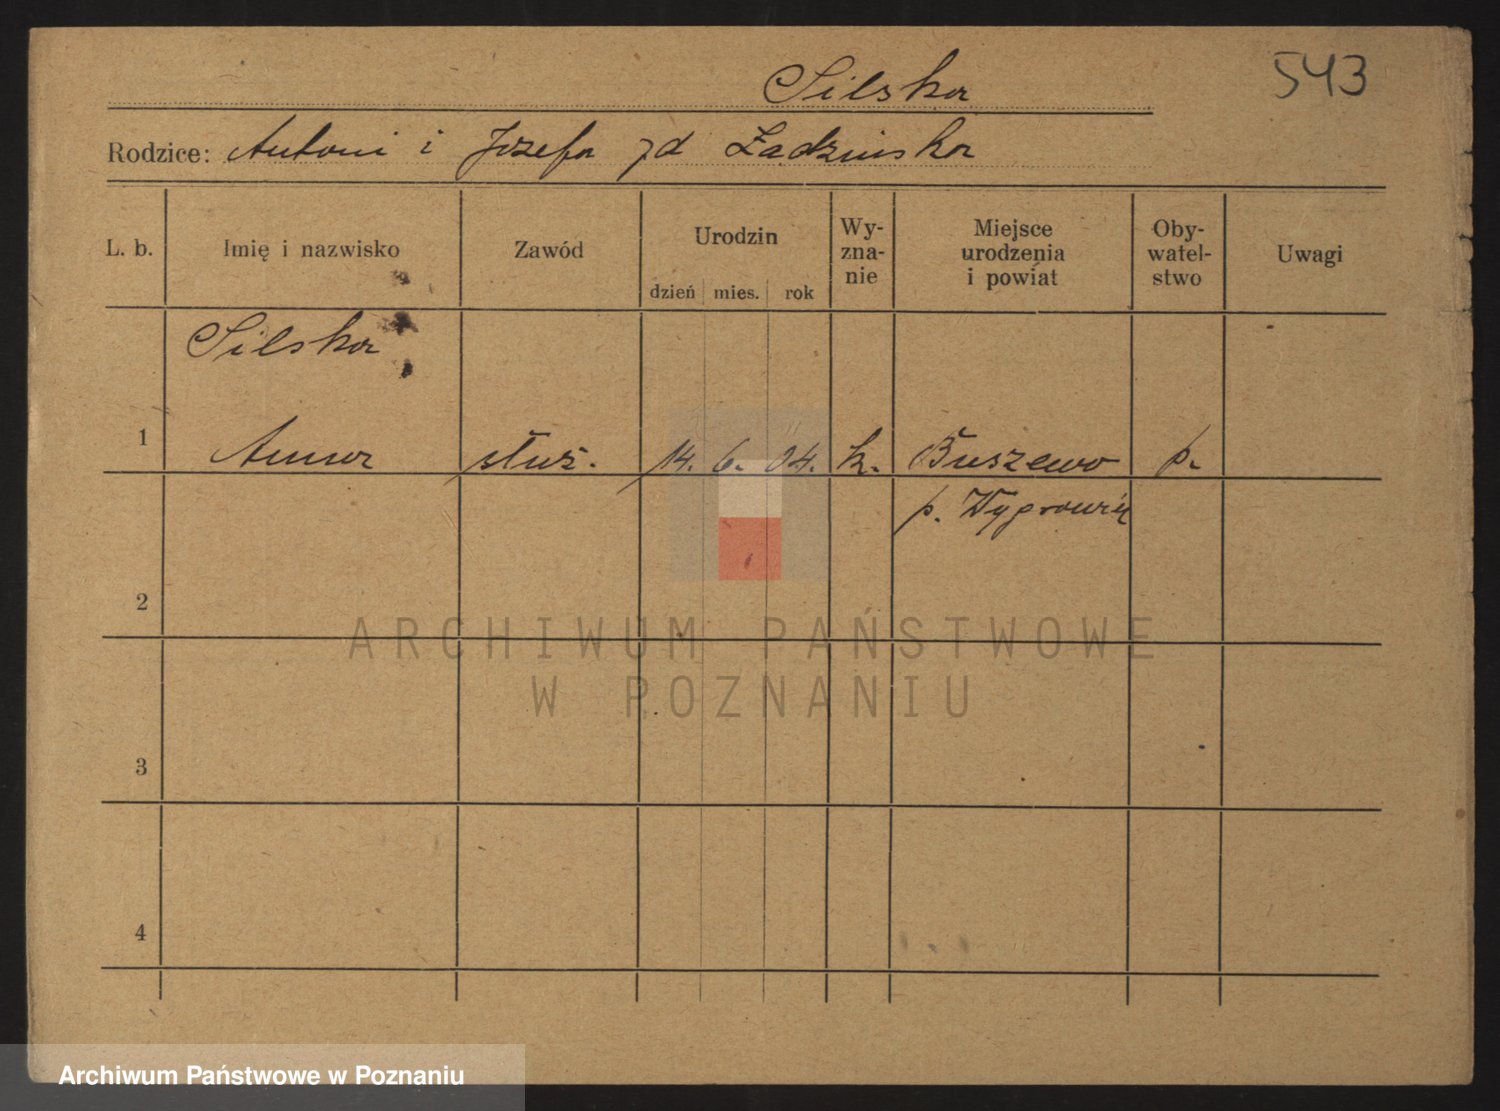 543
Silska
Rodzice: Antoni i Józefa zd Żadzińska
L. b. Imię i nazwisko Zawód Urodzin dzień mies. rok Wy-zna-nie Miejsce urodzenia i powiat Oby-watel-stwo Uwagi
Silska
1 Anna służ. 14. 6. 04. k. Buszewo p.
p.
2
ARCHIWUM PAŃSTWOWE
W POZNANIU
3
4
Archiwum Państwowe w Poznaniu